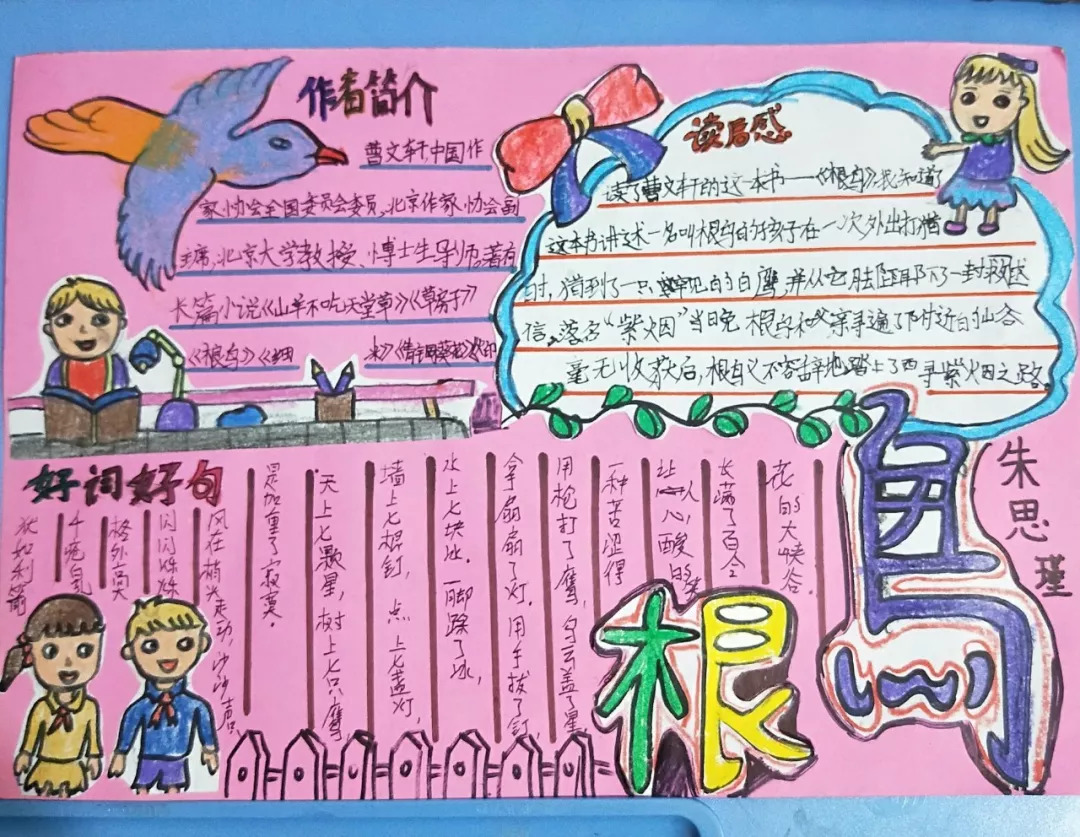 作者简介
曹文轩,中国作
家协会全国委员会委员,北京作家协会副
主席,北京大学教授、博士生导师。著有
长篇小说《山羊不吃天堂草》《草房子》
《根鸟》《细 米》《青铜葵花》
读后感
读了曹文轩的这一本书——《根鸟》我知道了
这本书讲述一名叫根鸟的孩子在一次外出打猎
时,猎到了一只罕见的白鹰,并从它腿取下了一封
信。落名“紫烟”当日晚 根鸟和父亲寻遍了附近的山谷
毫无收获后,根鸟义不容辞地踏上了西寻紫烟之路。
好词好句
犹如利箭
格外高
闪闪烁烁
风在梢头走动,沙沙声,
是加重了寂寞。
天上七颗星,树上七只鹰
墙上七根钉,点上七盏灯,
水上七块冰。一脚踩了冰,
拿扇扇了灯。用手拔了钉,
用枪打了鹰,乌云盖了星
一种苦涩得
让人心酸的笑
长满了百合
花的大峡谷。
根鸟
朱思瑾